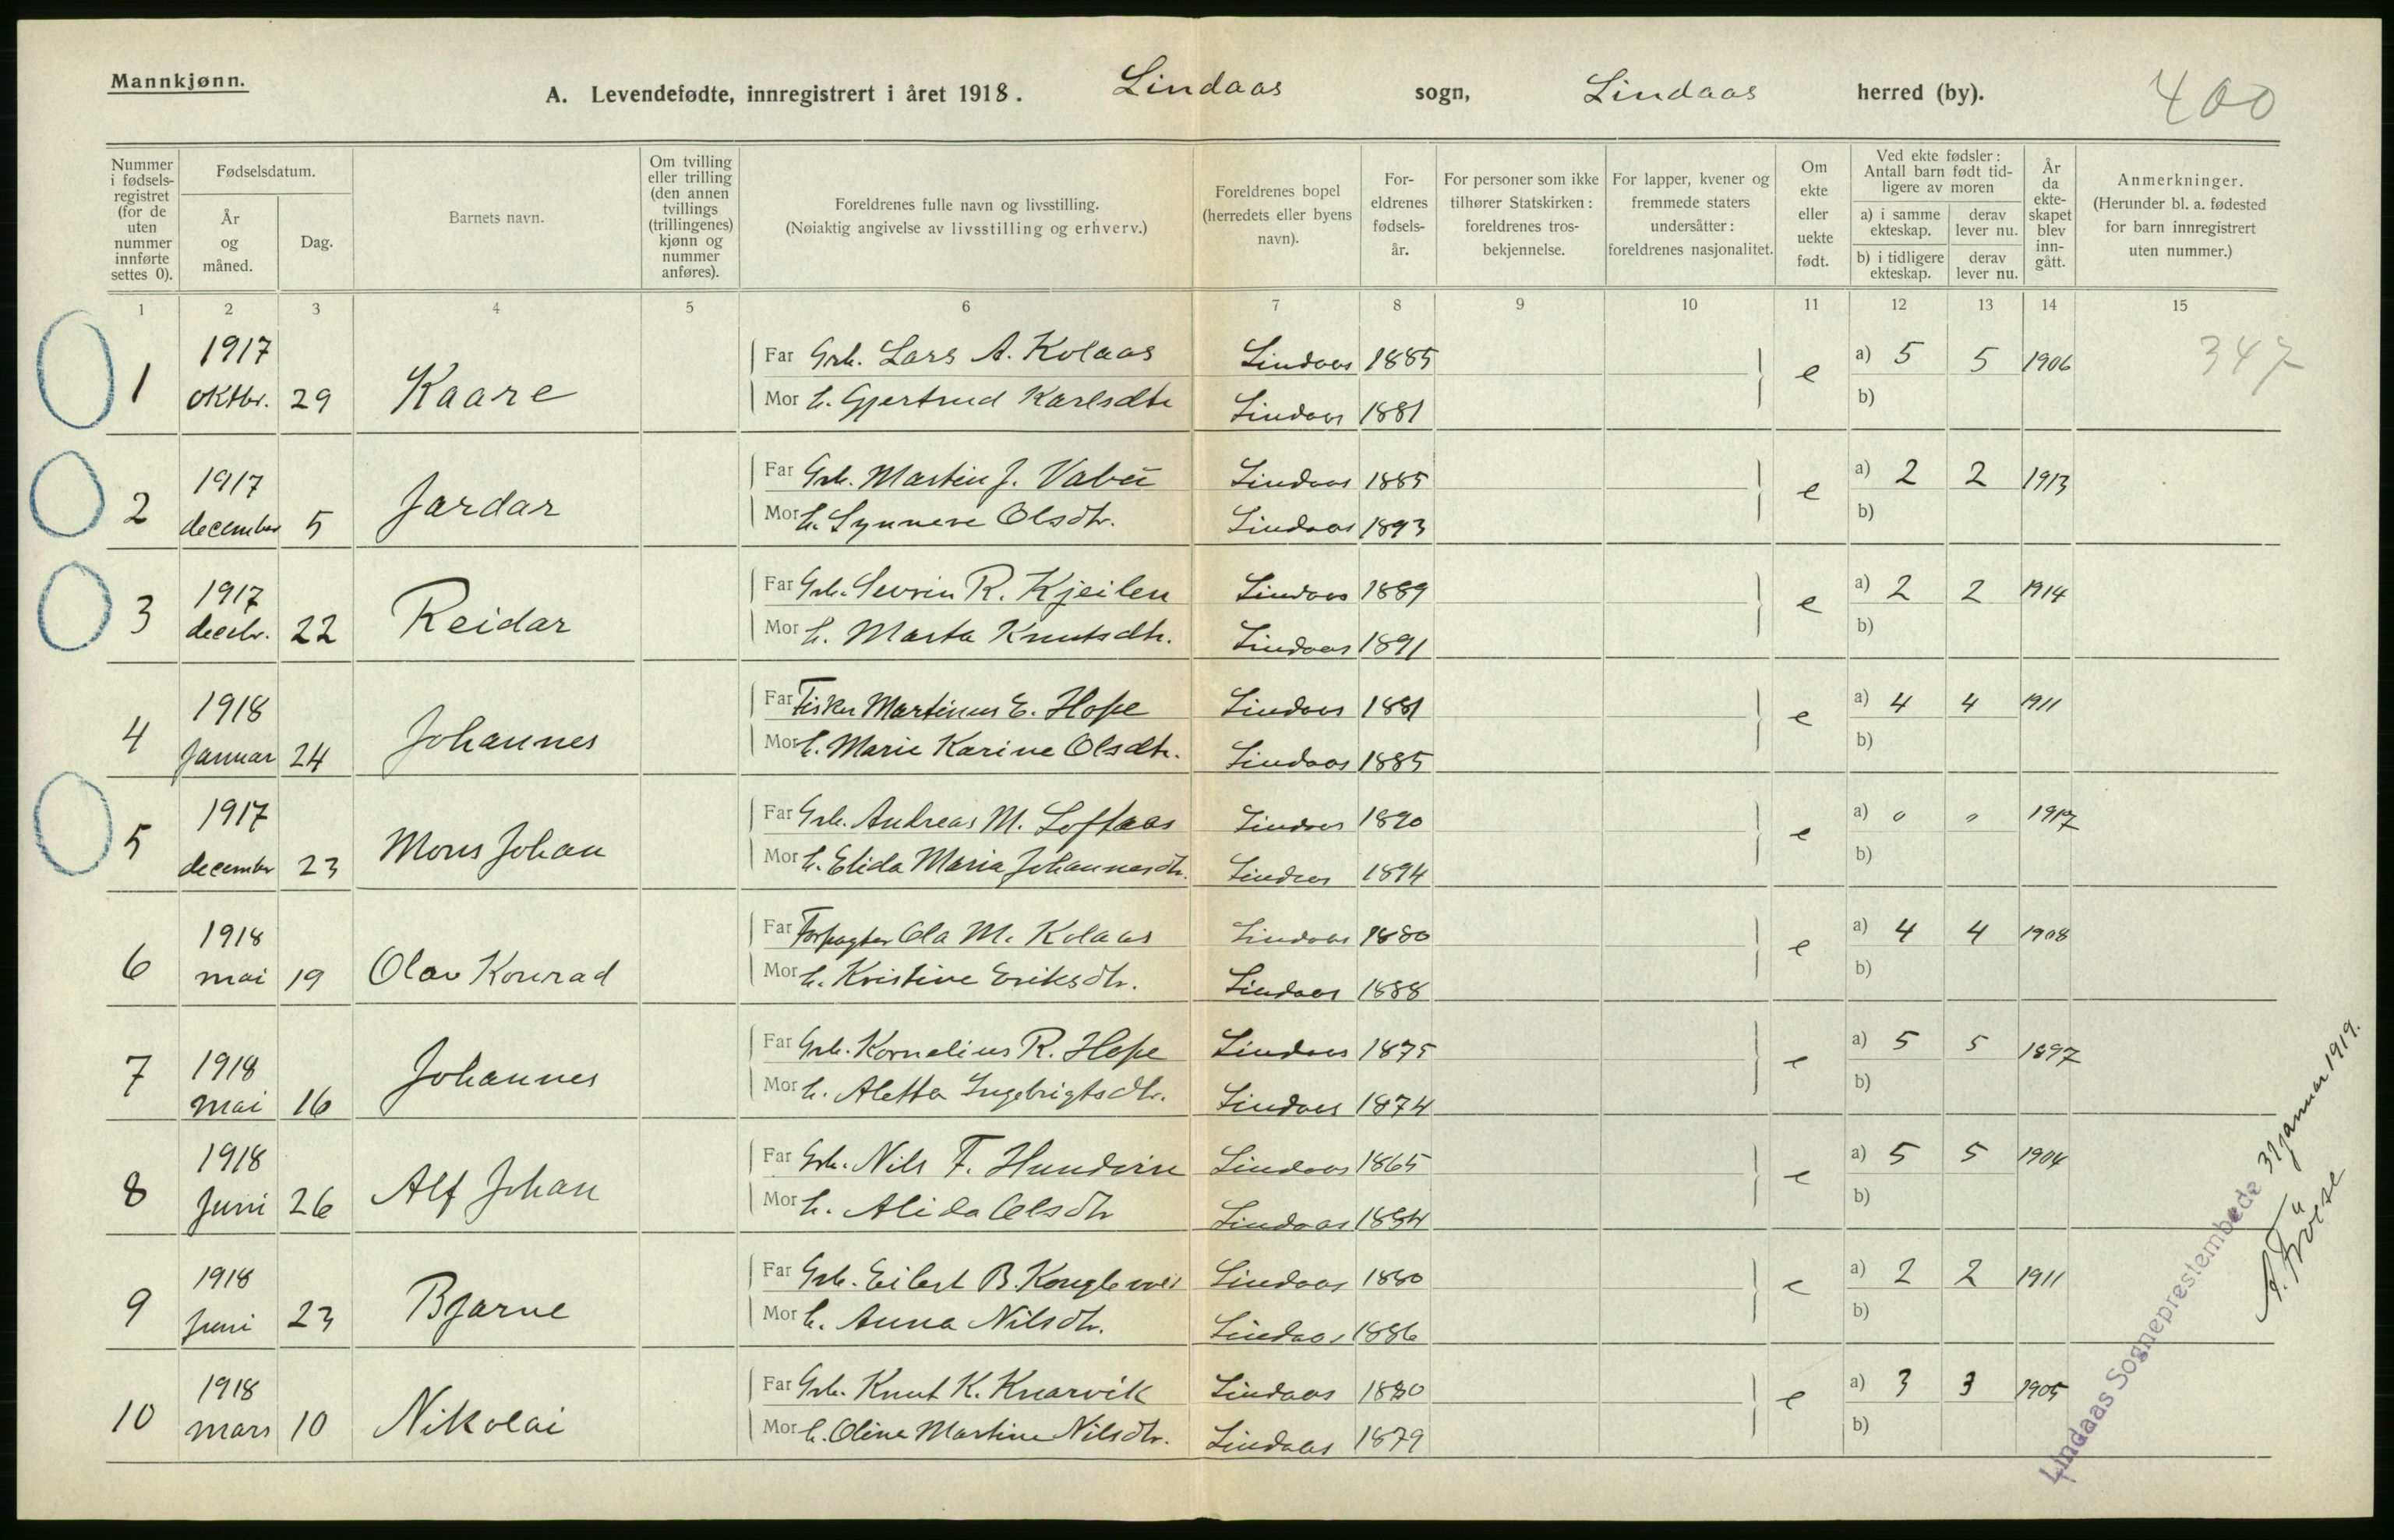 Mannkjønn.
A. Levendefødte, innregistrert i året 1918. Lindaas sogn, Lindaas herred (by).
400
Nummer i fødsels-registret (for de uten nummer innførte settes 0).
Fødselsdatum.
År og måned.
Dag.
Barnets navn.
Om tvilling eller trilling (den annen tvillings (trillingenes) kjønn og nummer anføres).
Foreldrenes fulle navn og livsstilling.
(Nøiaktig angivelse av livsstilling og erhverv.)
Foreldrenes bopel (herredets eller byens navn).
For-eldrenes fødsels-år.
For personer som ikke tilhører Statskirken: foreldrenes tros-bekjennelse.
For lapper, kvener og fremmede staters undersåtter: foreldrenes nasjonalitet.
Om ekte eller uekte født.
Ved ekte fødsler: Antall barn født tid-ligere av moren
a) i samme ekteskap.
derav lever nu.
b) i tidligere ekteskap.
derav lever nu.
År da ekte-skapet blev inn-gått.
Anmerkninger.
(Herunder bl. a. fødested for barn innregistrert uten nummer.)
1 2 3 4 5 6 7 8 9 10 11 12 13 14 15
1917 Far Grb. Lars A. Kolaas Lindaas 1885 a) 5 5 1906 347
1 oktbr. 29 Kaare Mor h. Gjertrud Karlsdtr Lindaas 1881 e b)
1917 Far Grb. Martin J. Vabø Lindaas 1885 a) 2 2 1913
2 december 5 Jardar Mor h. Synneve Olsdtr. Lindaas 1893 e b)
1917 Far Grb. Sevrin R. Kjeilen Lindaas 1889 a) 2 2 1914
3 decbr. 22 Reidar Mor h. Marta Knutsdtr. Lindaas 1891 e b)
1918 Far Fisker Martinus E. Hope Lindaas 1881 a) 4 4 1911
4 Januar 24 Johannes Mor h. Marie Karine Olsdtr. Lindaas 1885 e b)
1917 Far Grb. Andreas M. Loftaas Lindaas 1890 a) 0 0 1917
5 december 23 Mons Johan Mor h. Elida Maria Johannesdtr. Lindaas 1894 e b)
1918 Far Forpagter Ola M. Kolaas Lindaas 1880 a) 4 4 1908
6 mai 19 Olav Konrad Mor h. Kristine Eriksdtr. Lindaas 1888 e b)
1918 Far Grb. Kornelius R. Hope Lindaas 1875 a) 5 5 1897
7 mai 16 Johannes Mor h. Aletta Ingebrigtsdtr. Lindaas 1874 e b)
1918 Far Grb. Nils F. Hundvin Lindaas 1865 a) 5 5 1904
8 Juni 26 Alf Johan Mor h. Alida Olsdtr Lindaas 1884 e b)
1918 Far Grb. Eilert B. Lindaas 1880 a) 2 2 1911
9 Juni 23 Bjarne Mor h. Anna Nilsdtr. Lindaas 1886 e b)
1918 Far Grb. Knut K. Knarvik Lindaas 1880 a) 3 3 1905
10 mars 10 Nikolai Mor h. Oline Martine Nilsdtr. Lindaas 1879 e b)
Lindaas Sogneprestembede 31 januar 1919.